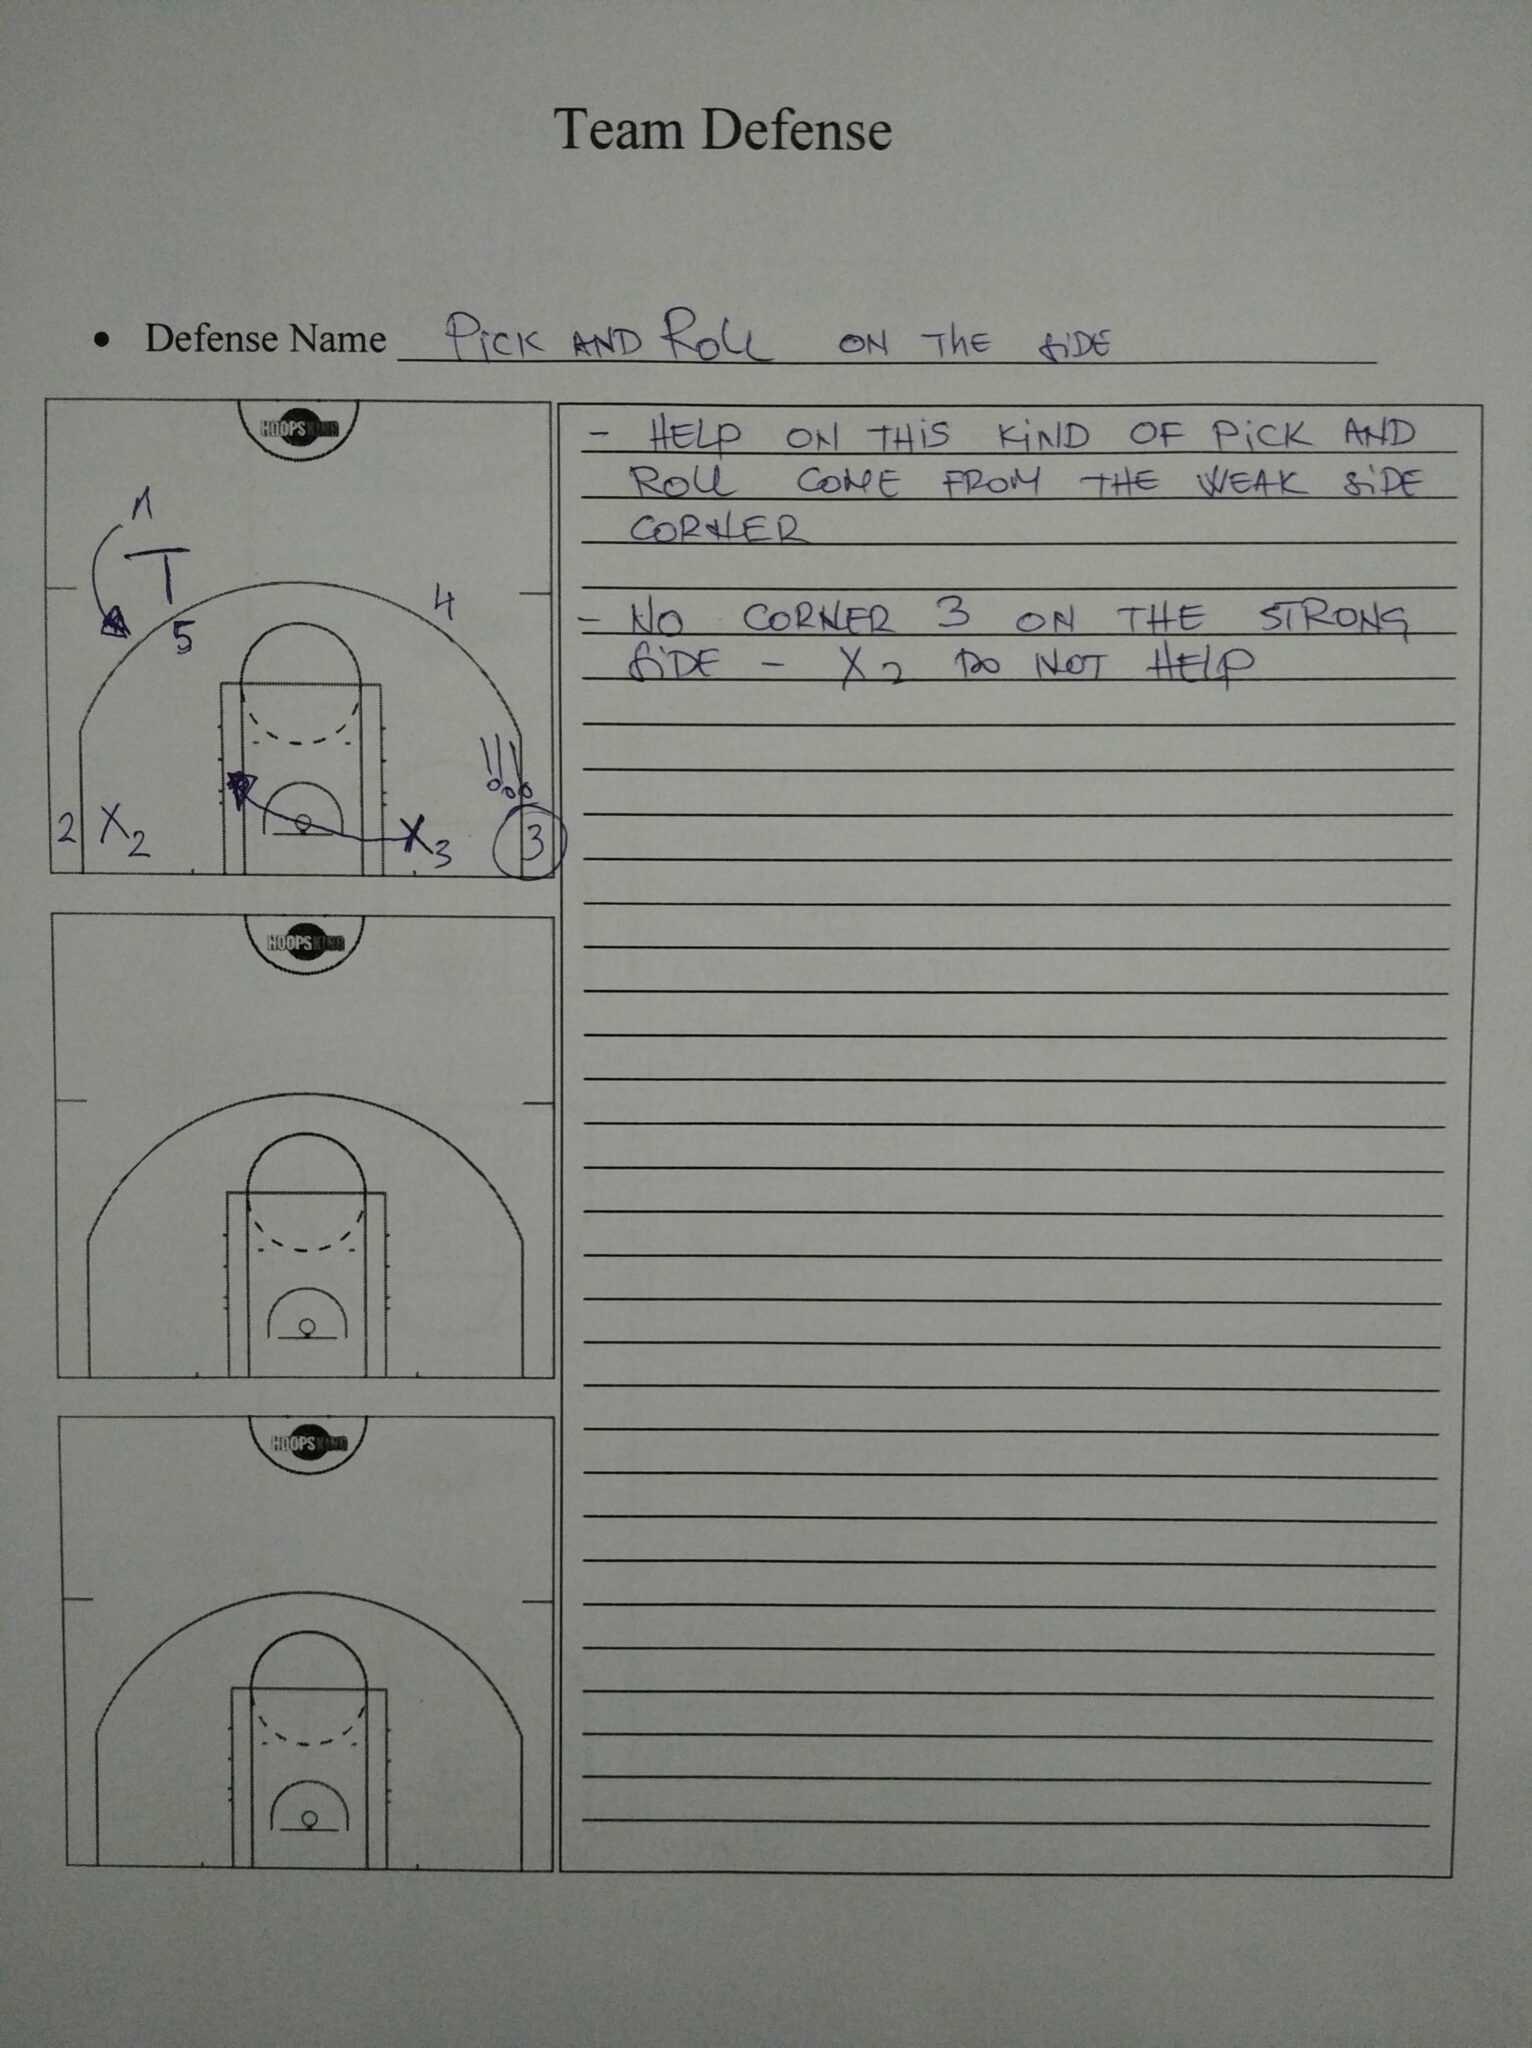 Team Defense
• Defense Name PiCK AND ROLL ON THE SiDE
HOOPSKING
- HELP ON THIS KIND OF PiCK AND
ROLL COME FROM THE WEAK SiDE
CORNER
- NO CORNER 3 ON THE STRONG
SiDE - X2 DO NOT HELP
1
4
5
!!!
2 X2
X3
3
HOOPSKING
HOOPSKING